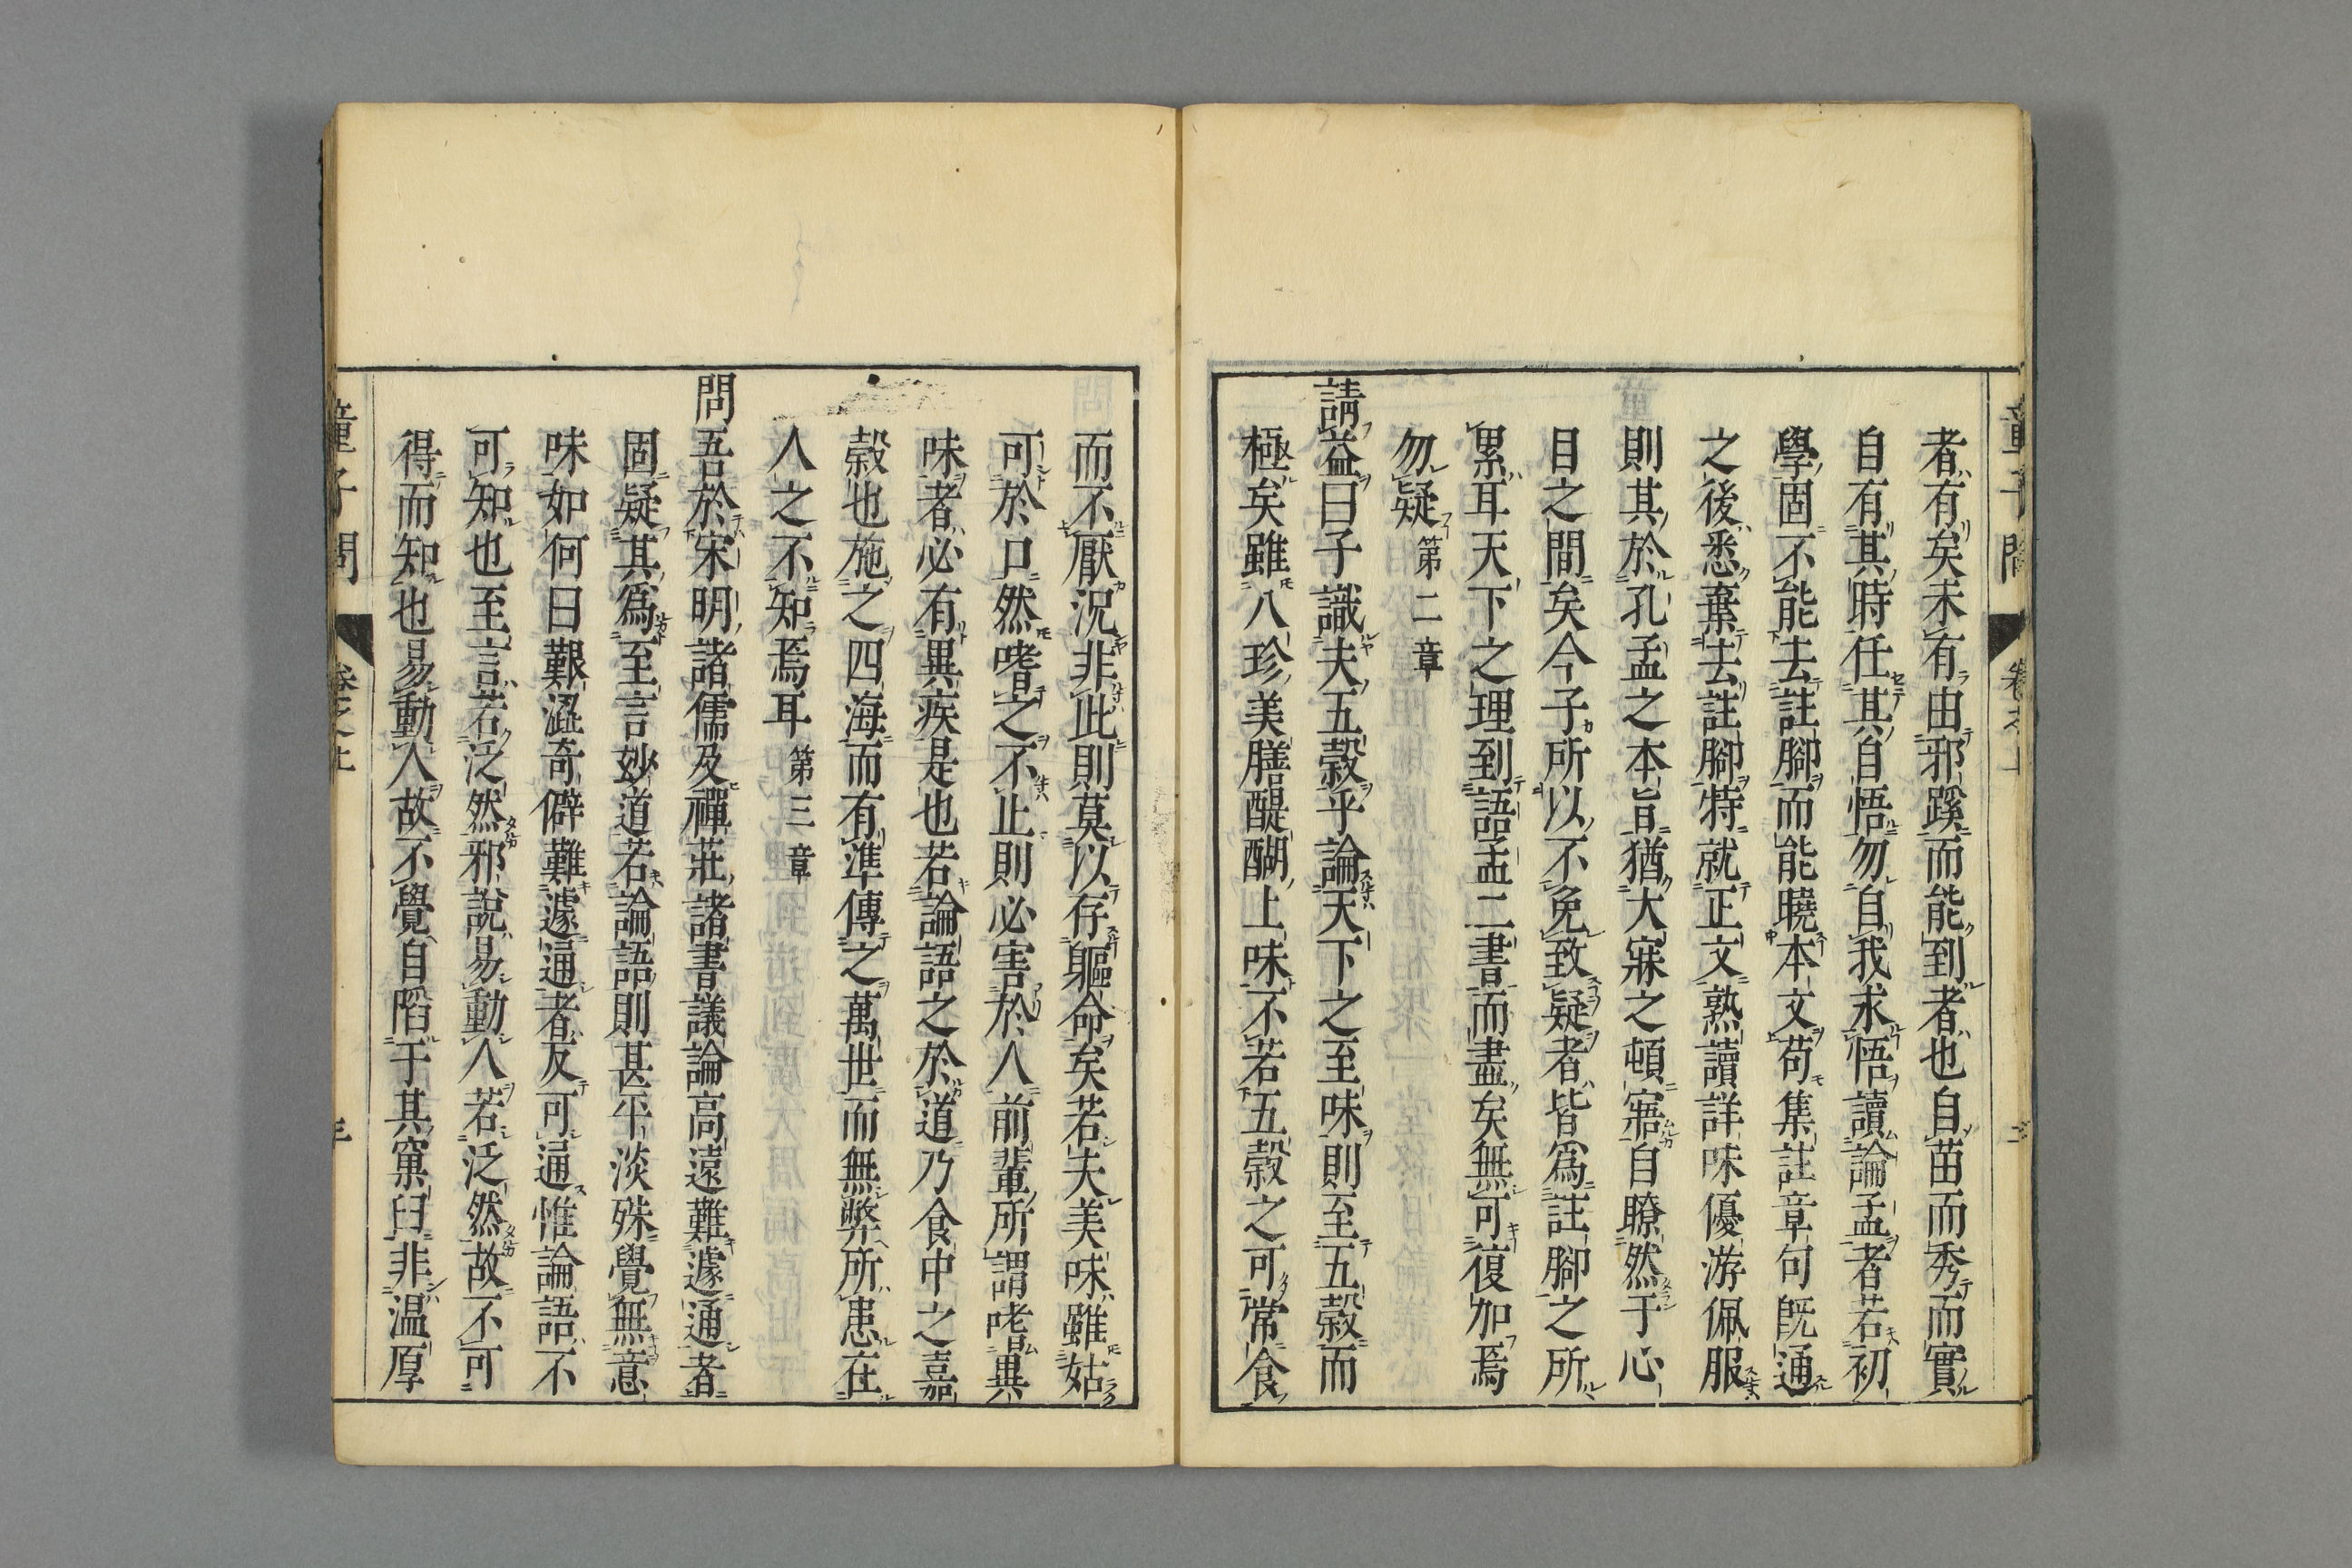 者有矣未有由邪蹊而能到者也自苗而秀而實
自有其時任其自悟勿自我求悟讀論孟者若初
學固不能去註腳而能曉本文苟集註章句既通
之後悉棄去註腳特就正文熟讀詳味優游佩服
則其於孔孟之本旨猶大寐之頓寤自瞭然于心
目之間矣今子所以不免致疑者皆爲註腳之所
累耳天下之理到語孟二書而盡矣無可復加焉
勿疑 第二章
請益曰子識夫五穀乎論天下之至味則至五穀而
極矣雖八珍美膳醍醐上味不若五穀之可常食
而不厭況非此則莫以存軀命矣若夫美味雖姑
可於口然嗜之不止則必害於人前輩所謂嗜異
味者必有異疾是也若論語之於道乃食中之嘉
穀也施之四海而有準傳之萬世而無弊所患在
人之不知焉耳 第三章
問吾於宋明諸儒及禪莊諸書議論高遠難遽通者
固疑其爲至言妙道若論語則甚平淡殊覺無意
味如何曰艱澀奇僻難遽通者反可通惟論語不
可知也至言若泛然邪說易動人若泛然故不可
得而知也易動人故不覺自陷于其窠臼非温厚
童子問 卷之上